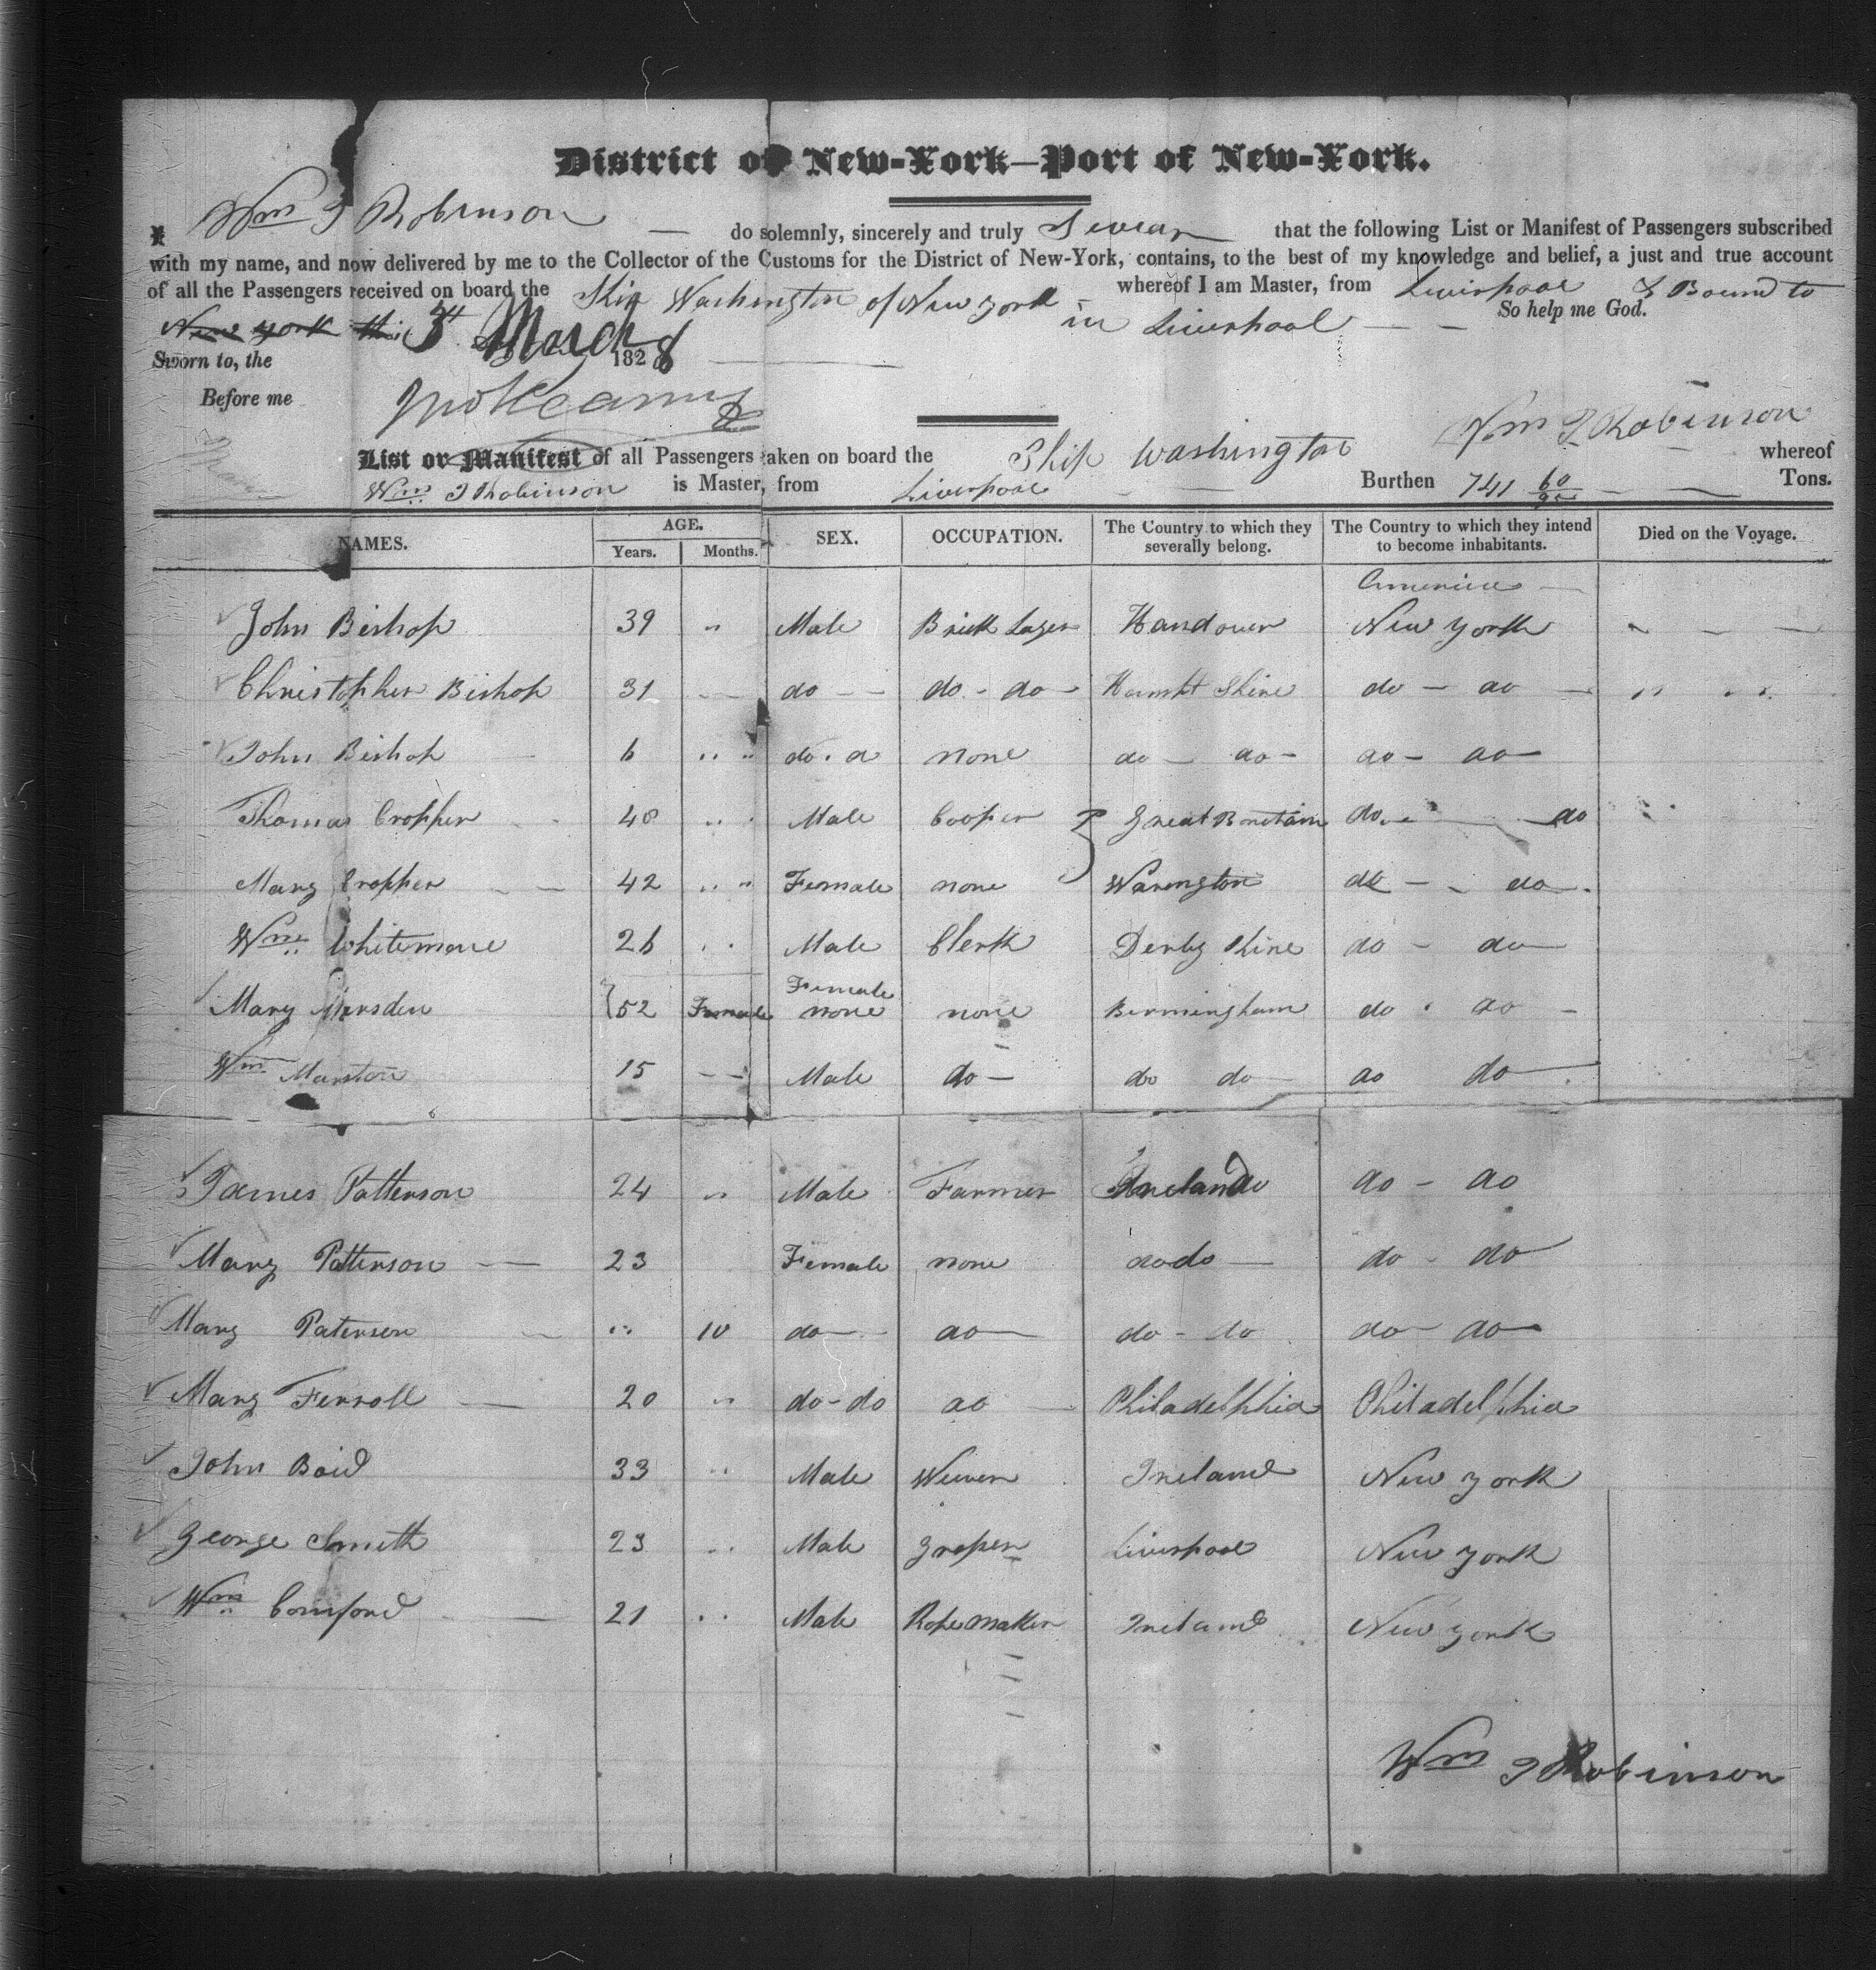 District of New-York—Port of New-York.
I Wm T Robinson — do solemnly, sincerely and truly Swear that the following List or Manifest of Passengers subscribed
with my name, and now delivered by me to the Collector of the Customs for the District of New-York, contains, to the best of my knowledge and belief, a just and true account
of all the Passengers received on board the Ship Washington of New york whereof I am Master, from Liverpool & Bound to
New york this in Liverpool — — So help me God.
Sworn to, the 3d March 1828
Before me
Wm T Robinson
List or Manifest of all Passengers taken on board the Ship Washington whereof
Wm T Robinson is Master, from Liverpool — — Burthen 741 60/95 — — Tons.
NAMES. AGE. Years. Months. SEX. OCCUPATION. The Country to which they severally belong. The Country to which they intend to become inhabitants. Died on the Voyage.
America —
John Bishop 39 " Male Brick Layer New york
Christopher Bishop 31 — do — — do - do — Hamst Shire do — do —
John Bishop 6 " " do none do — do — do — do
Thomas Cropper 40 " Male Cooper Great Britain do — do
Mary Cropper — — 42 " " Female none Warington do — — do
Wm Whitemore 26 " Male Clerk Derby Shire do — do
Mary Marsden 52 Female Female none none Birmingham do do —
Wm Marston 15 — — Male do — do do — do do
James Patterson 24 " Male Farmer Ireland do — do
Mary Patterson — 23 Female none do do — do — do
Mary Paterson — " 10 do — do — do - do do — do
Mary Ferroll — 20 " do - do do — Philadelphia Philadelphia
John Boid 33 " Male Wever Ireland New york
George Smith 23 " Male Liverpool New york
Wm 21 " Male Rope maker Ireland New york
Wm T Robinson